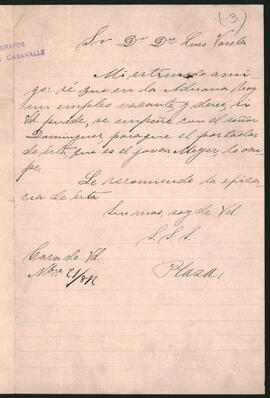 (3)
OGRAFOS
CASAVALLE
Sr Dr Dn Luis Varela
Mi estimado ami-
go: sé que en la Aduana hay
un empleo vacante y deseo, si
Vd. puede, se empeñe con el señor
Dominguez para que el portador
de ésta, que es el joven Meyer, lo ocu-
pe.
Le recomiendo la efica-
cia de ésta
Sin mas, soy de Vd.
S. S. S.
Casa de Vd.
Plaza